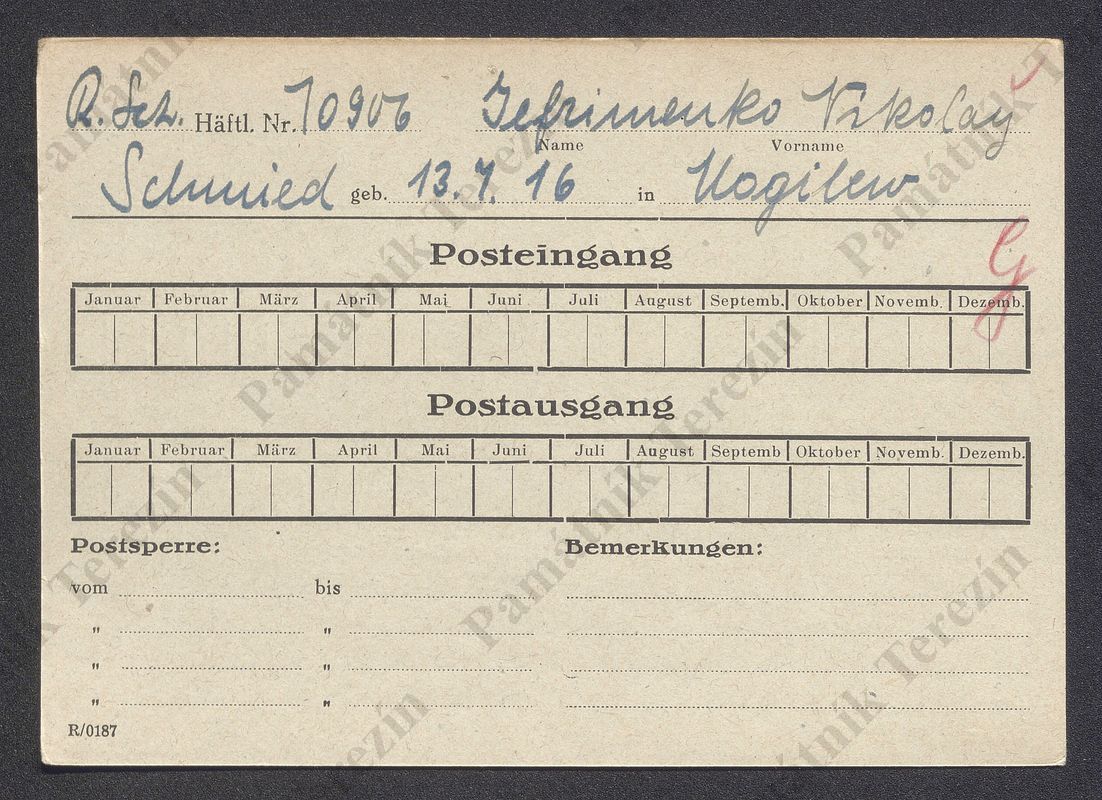 R. Sch. Häftl. Nr. 10906 Jefrimenko Nikolay
Name Vorname
Schmied geb. 13. 7. 16 in Mogilew
G
Posteingang
Januar Februar März April Mai Juni Juli August Septemb. Oktober Novemb. Dezemb.
Postausgang
Januar Februar März April Mai Juni Juli August Septemb Oktober Novemb. Dezemb.
Postsperre: Bemerkungen:
vom bis
" "
" "
" "
R/0187
Památník Terezín